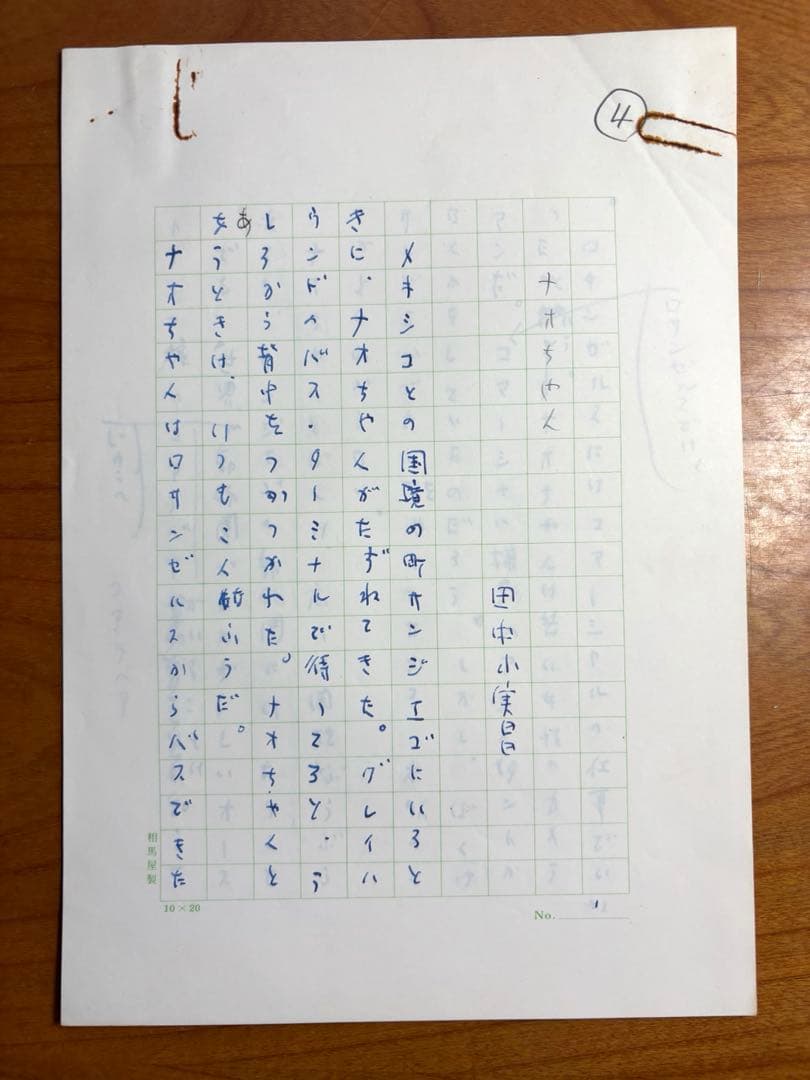 4
ナオちゃん
田中小実昌
メキシコとの国境の町サンジエゴにいると
きに、ナオちゃんがたずねてきた。グレイハ
ウンドのバス・ターミナルで待ってると、う
しろから背中をつかつかれた。ナオちゃんと
あうときは、いつもこんなふうだ。
ナオちゃんはロサンゼルスからバスできた
相馬屋製
10×20
No. 1